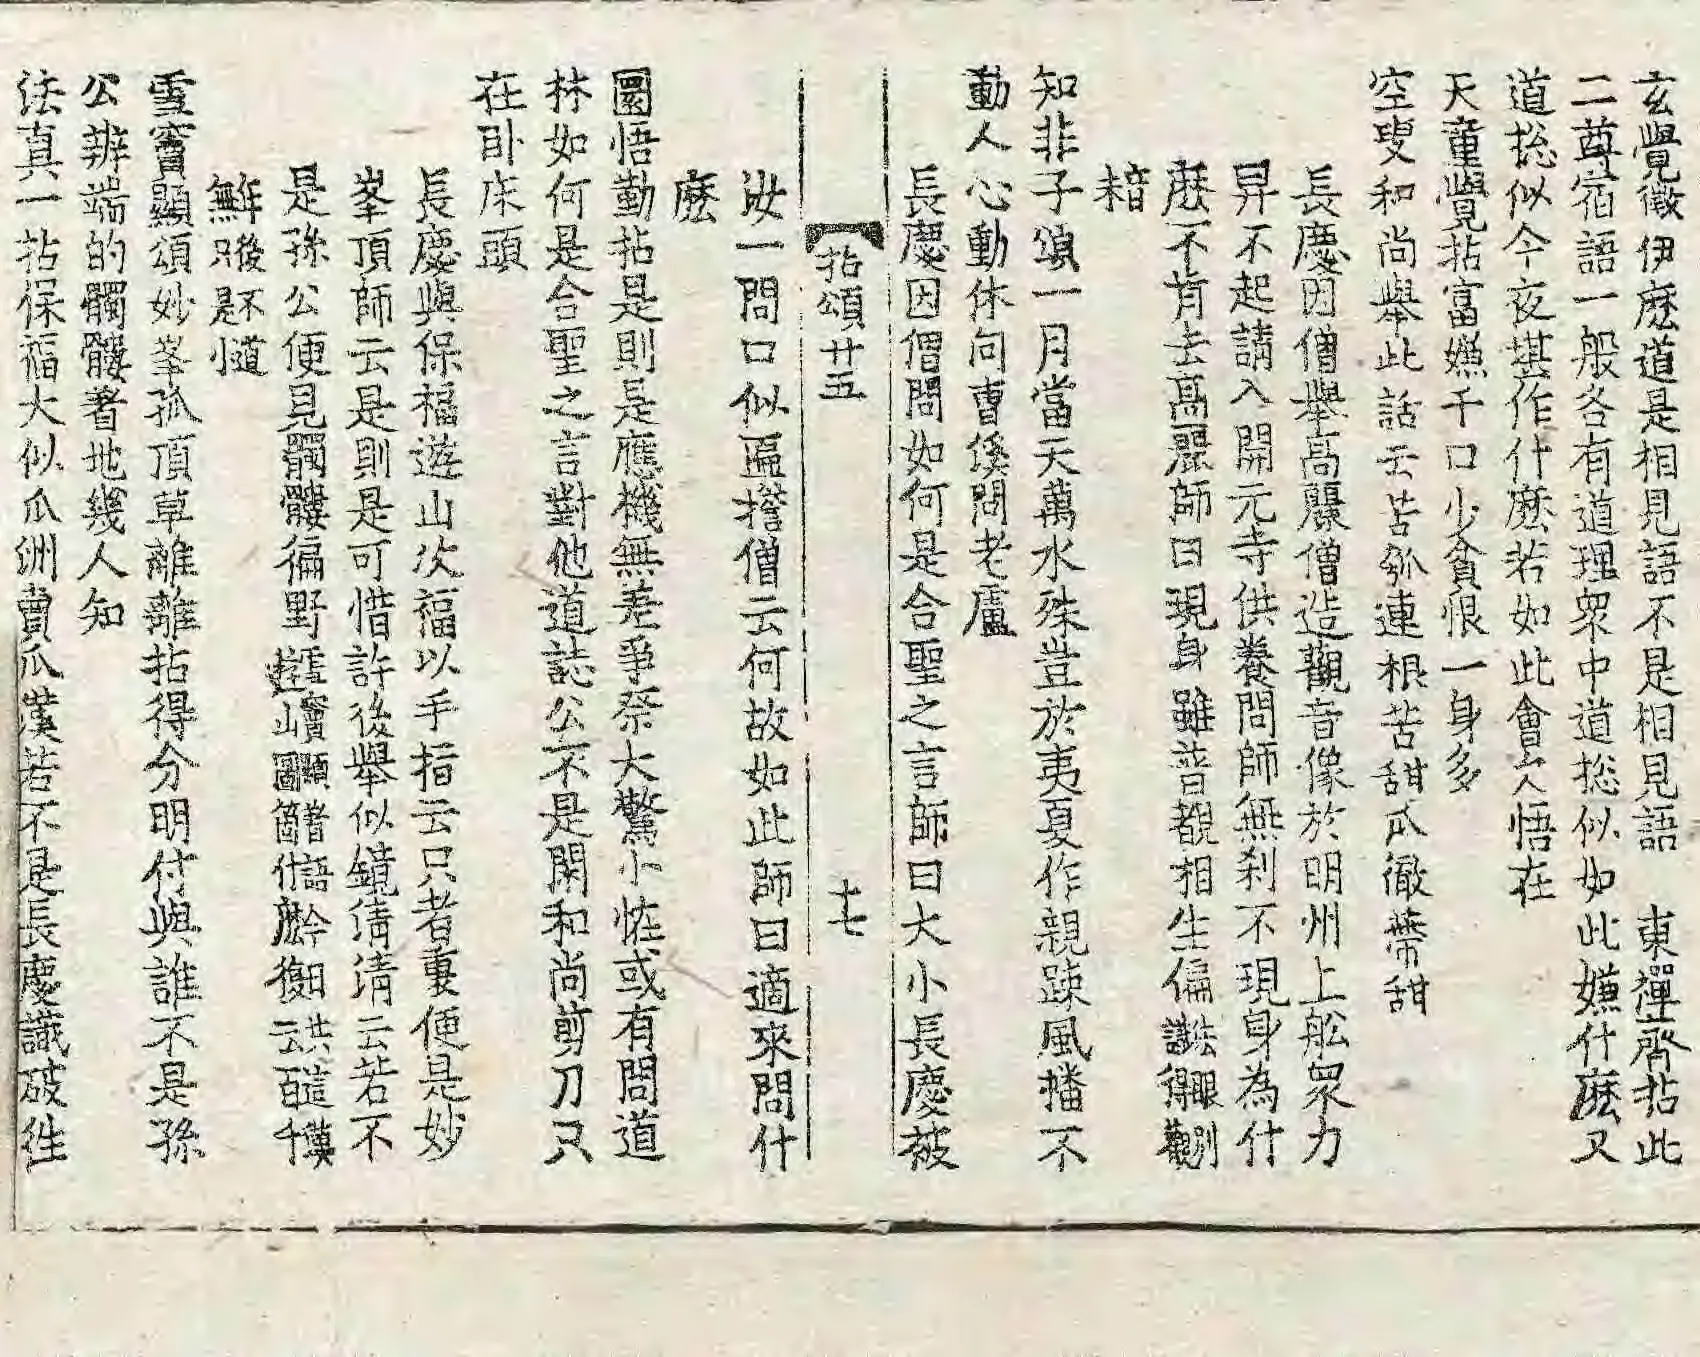 玄覺徵伊麽道是相見語不是相見語　東禪齊拈此
二尊宿語一般各有道理衆中道揔似如此嫌什麽又
道揔似今夜堪作什麽若如此會人悟在
天童覺拈富嫌千口少貧恨一身多
空叟和尚舉此話云苦瓠連根苦甜瓜徹蔕甜
長慶因僧舉高麗僧造觀音像於明州上舡衆力
昇不起請入開元寺供養問師無刹不現身為什
麽不肯去高麗師曰現身雖普覩相生偏法眼別識得觀
音
知非子頌一月當天萬水殊豈於夷夏作親踈風播不
動人心動休向曹溪問老盧
長慶因僧問如何是合聖之言師曰大小長慶被
拈頌廿五　十七
汝一問口似匾擔僧云何故如此師曰適來問什
麽
圜悟勤拈是則是應機無差爭奈大驚小怪或有問道
林如何是合聖之言對他道誌公不是閑和尚剪刀只
在臥床頭
長慶與保福遊山次福以手指云只者裏便是妙
峯頂師云是則是可惜許後舉似鏡清清云若不
是孫公便見髑髏徧野雪竇顯著語今日共這漢遊山圖箇什麽復云百千
年後不道無只是小
雪竇顯頌妙峯孤頂草離離拈得分明付與誰不是孫
公辨端的髑髏著地幾人知
法眞一拈保福大似瓜洲賣瓜漢若不是長慶識破往